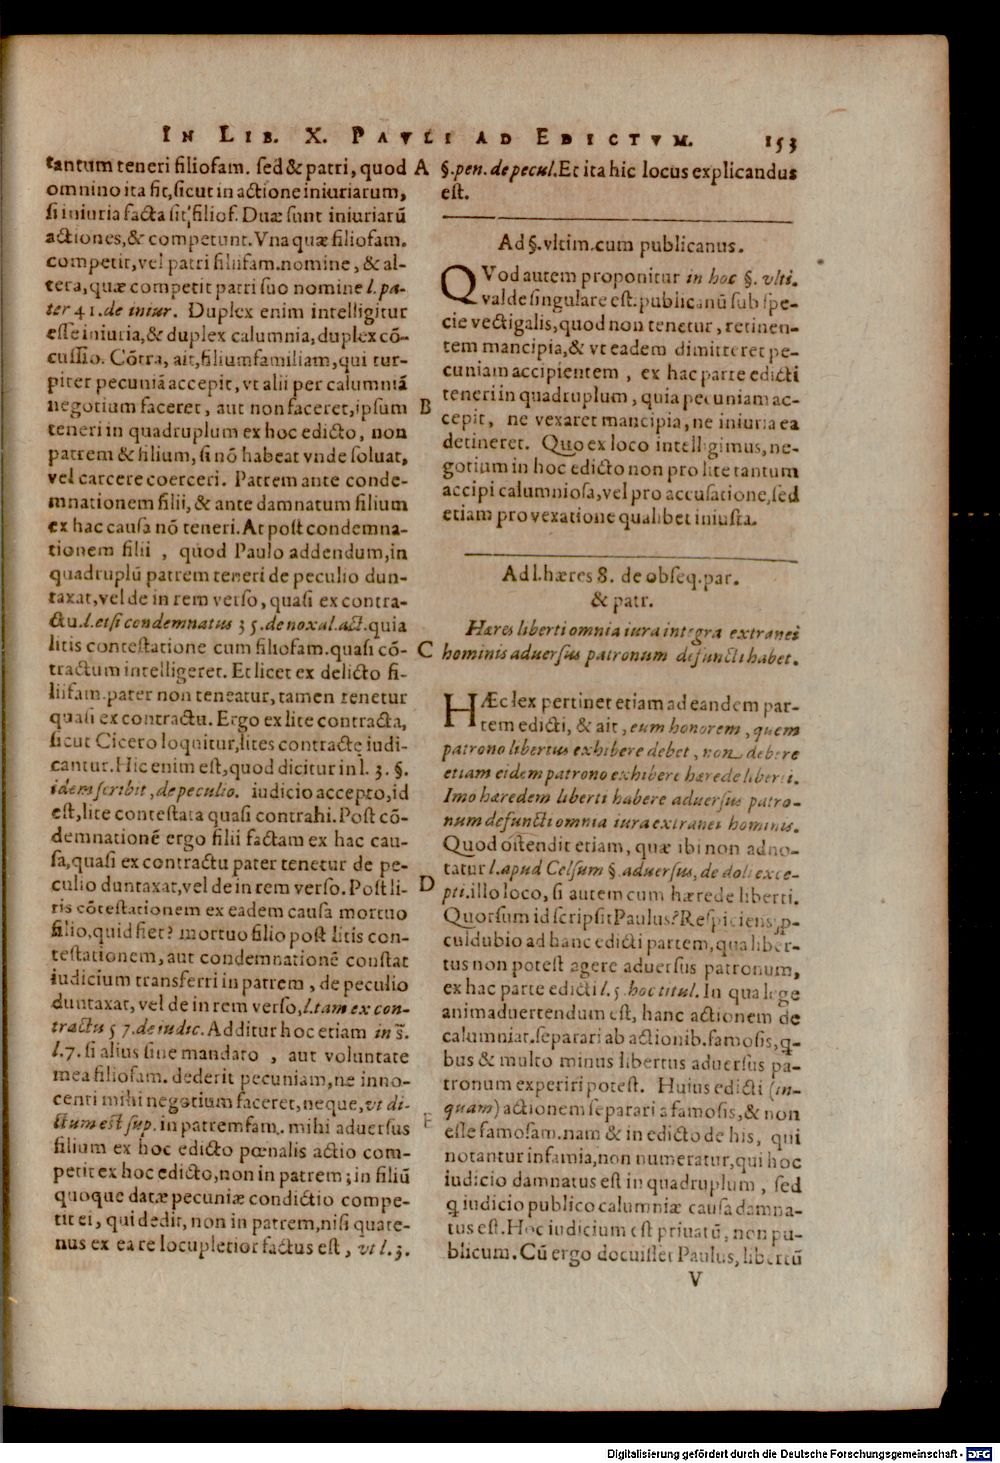 IN LIB. X. PAVLI AD EDICTVM. 153
tantum teneri filiofam. sed & patri, quod
omnino ita sit, sicut in actione iniuriarum,
si iniuria facta sit filiof. Duæ sunt iniuriarũ
actiones, & competunt. Vna quæ filiofam.
competit, vel patri filiifam. nomine, & al-
tera, quæ competit patri suo nomine l. pa-
ter 41. de iniur. Duplex enim intelligitur
esse iniuria, & duplex calumnia, duplex cõ-
cussio. Cõtra, ait, filiumfamiliam, qui tur-
piter pecuniã accepit, vt alii per calumniã
negotium faceret, aut non faceret, ipsum
teneri in quadruplum ex hoc edicto, non
patrem & filium, si nõ habeat vnde soluat,
vel carcere coerceri. Patrem ante conde-
mnationem filii, & ante damnatum filium
ex hac causa nõ teneri. At post condemna-
tionem filii, quod Paulo addendum, in
quadruplũ patrem teneri de peculio dun-
taxat, vel de in rem verso, quasi ex contra-
ctu. l. etsi condemnatus 35. de noxal. act. quia
litis contestatione cum filiofam. quasi cõ-
tractum intelligeret. Et licet ex delicto fi-
liifam. pater non teneatur, tamen tenetur
quasi ex contractu. Ergo ex lite contracta,
sicut Cicero loquitur, lites contractę iudi-
cantur. Hic enim est, quod dicitur in l. 3. §.
idem scribit, de peculio. iudicio accepto, id
est, lite contestata quasi contrahi. Post cõ-
demnationẽ ergo filii factam ex hac cau-
sa, quasi ex contractu pater tenetur de pe-
culio duntaxat, vel de in rem verso. Post li-
tis cõtestationem ex eadem causa mortuo
filio, quid fiet? mortuo filio post litis con-
testationem, aut condemnationẽ constat
iudicium transferri in patrem, de peculio
duntaxat, vel de in rem verso, l. tam ex con-
tractu 57. de iudic. Additur hoc etiam in s̃.
l. 7. si alius sine mandato, aut voluntate
mea filiofam. dederit pecuniam, ne inno-
centi mihi negotium faceret, neque, vt di-
ctum est sup. in patremfam. mihi aduersus
filium ex hoc edicto pœnalis actio com-
petit ex hoc edicto, non in patrem; in filiũ
quoque datæ pecuniæ condictio compe-
tit ei, qui dedit, non in patrem, nisi quate-
nus ex ea re locupletior factus est, vt l. 3.
A
B
C
D
E
§. pen. de pecul. Et ita hic locus explicandus
est.
Ad §. vltim. cum publicanus.
QVod autem proponitur in hoc §. vlti.
valde singulare est. publicanũ sub spe-
cie vectigalis, quod non tenetur, retinen-
tem mancipia, & vt eadem dimitteret pe-
cuniam accipientem, ex hac parte edicti
teneri in quadruplum, quia pecuniam ac-
cepit, ne vexaret mancipia, ne iniuria ea
detineret. Quo ex loco intelligimus, ne-
gotium in hoc edicto non pro lite tantum
accipi calumniosa, vel pro accusatione, sed
etiam pro vexatione qualibet iniusta.
Ad l. hæres 8. de obseq. par.
& patr.
Hæres liberti omnia iura integra extranei
hominis aduersus patronum defuncti habet.
HÆc lex pertinet etiam ad eandem par-
tem edicti, & ait, eum honorem, quem
patrono libertus exhibere debet, non debere
etiam eidem patrono exhibere hærede liberti.
Imo hæredem liberti habere aduersus patro-
num defuncti omnia iura extranei hominis.
Quod ostendit etiam, quæ ibi non adno-
tatur l. apud Celsum §. aduersus, de doli exce-
pti. illo loco, si autem cum hærede liberti.
Quorsum id scripsit Paulus? Respiciens, ꝓ-
culdubio ad hanc edicti partem, qua liber-
tus non potest agere aduersus patronum,
ex hac parte edicti l. 5. hoc titul. In qua lege
animaduertendum est, hanc actionem de
calumniat. separari ab actionib. famosis, q̃-
bus & multo minus libertus aduersus pa-
tronum experiri potest. Huius edicti (in-
quam) actionem separari a famosis, & non
esse famosam. nam & in edicto de his, qui
notantur infamia, non numeratur, qui hoc
iudicio damnatus est in quadruplum, sed
q̃ iudicio publico calumniæ causa damna-
tus est. Hoc iudicium est priuatũ, non pu-
blicum. Cũ ergo docuisset Paulus, libertũ
V
Digitalisierung gefördert durch die Deutsche Forschungsgemeinschaft - DFG